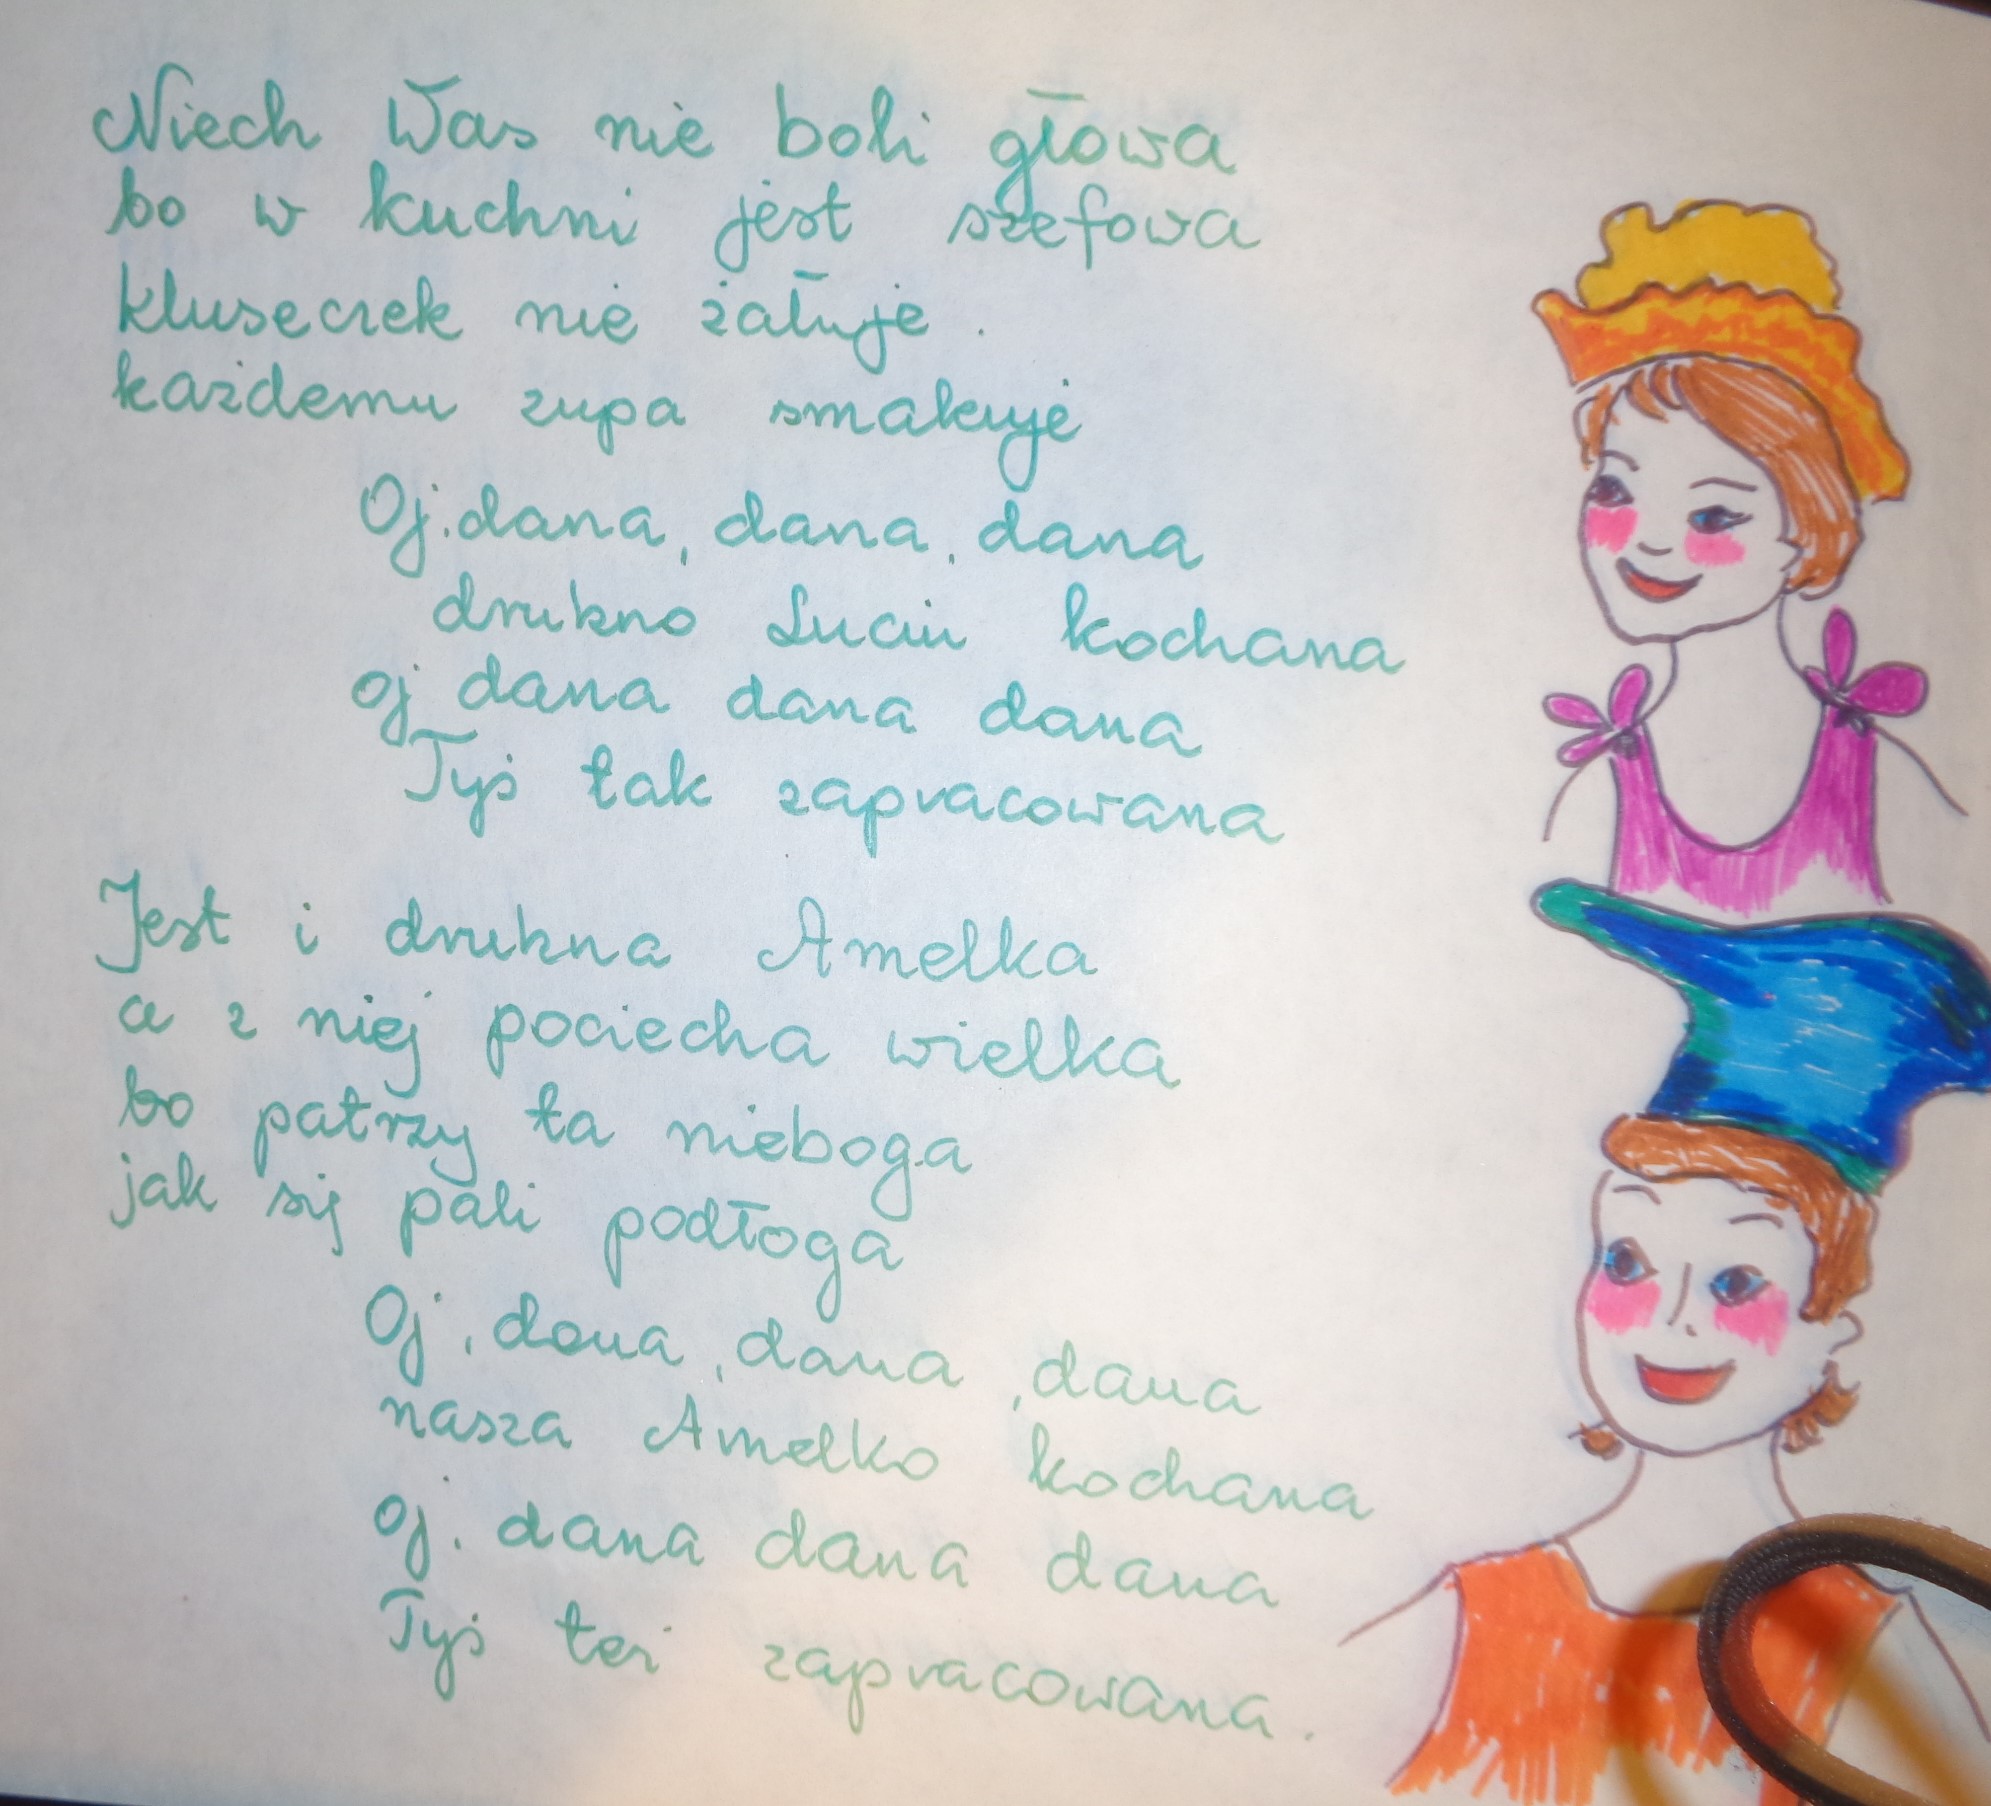 Niech Was nie boli głowa
bo w kuchni jest szefowa
kluseczek nie żałuje.
każdemu zupa smakuje
Oj.dana, dana, dana
druhno Luciu kochana
oj dana dana dana
Tyś tak zapracowana
Jest i druhna Amelka
a z niej pociecha wielka
bo patrzy ta nieboga
jak się pali podłoga
Oj, dana, dana, dana
nasza Amelko kochana
oj. dana dana dana
Tyś też zapracowana.